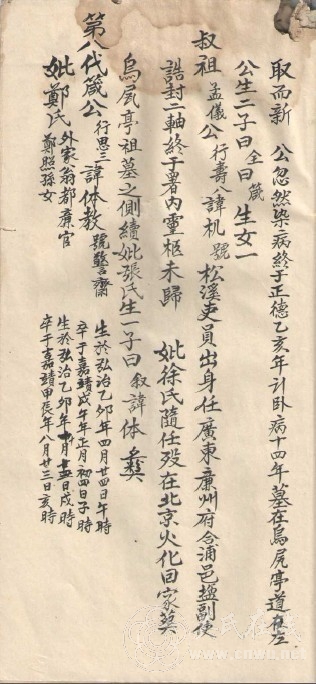 取而新　公忽然染病終于正德乙亥年计卧病十四年墓在烏尻亭道右左
公生二子曰全曰箴　生女一
叔祖孟儀公行壽八諱机號松溪吏員出身任廣東廉州府合浦邑塩副使
誥封二軸終于署内靈柩未歸　妣徐氏隨任殁在北京火化回家葵
烏尻亭祖墓之側續妣張氏生一子曰叙諱体彝
第八代箴公行思三諱体教號警齋
生於弘治乙卯年四月廿四日午時
卒于嘉靖戊午年正月初四日子時
妣鄭氏外家翁都廉官
鄭照孫女
生於弘治乙卯年十月十五日戌時
卒于嘉靖甲辰年八月廿三日亥時
www.cnwb.net